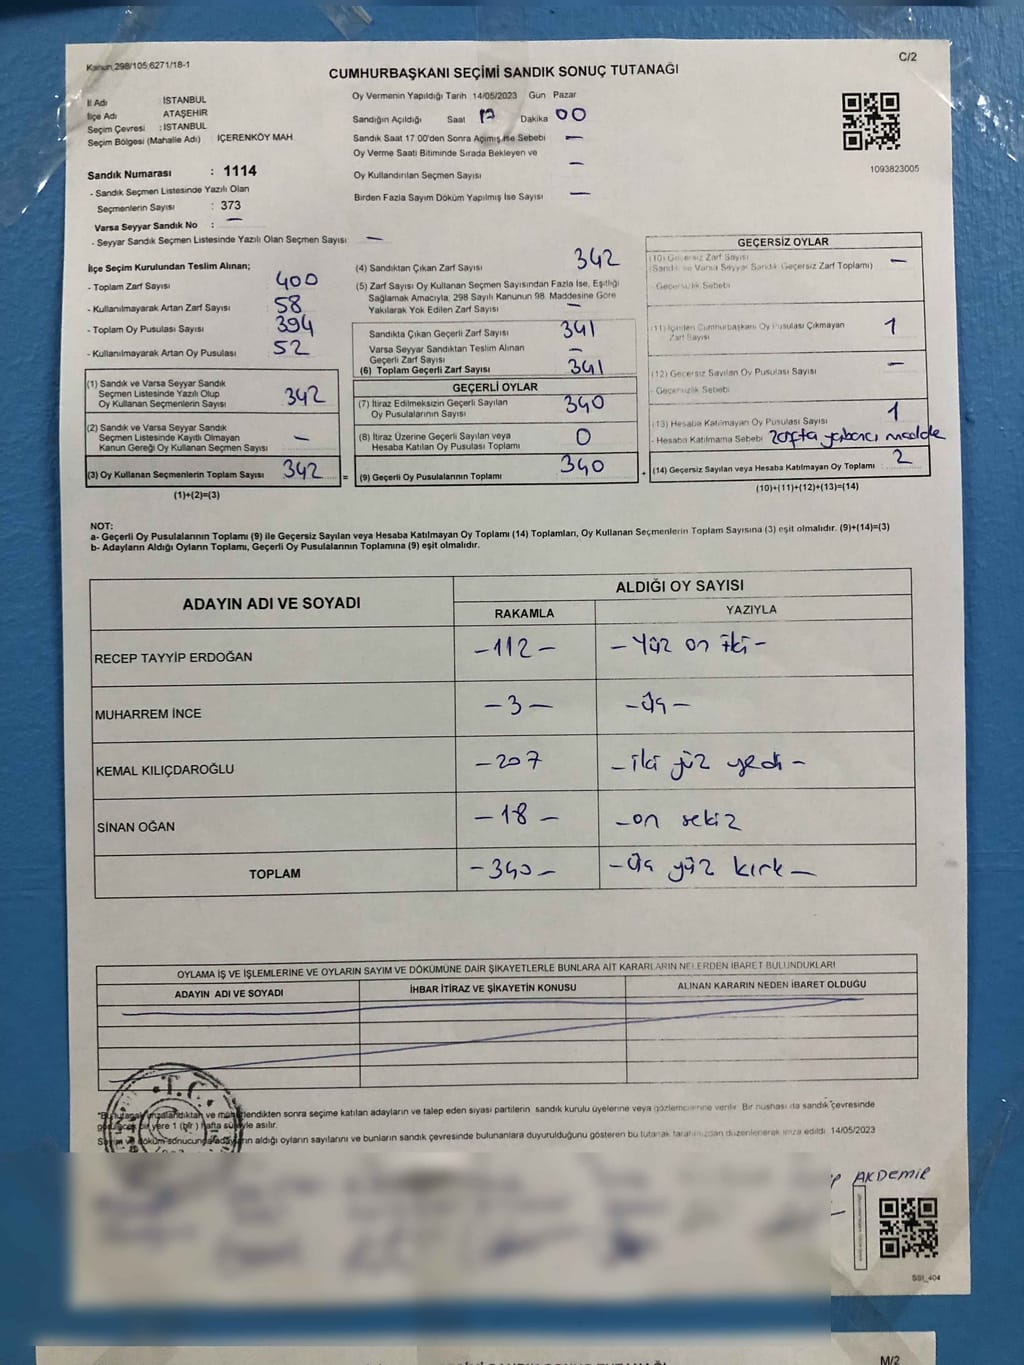 Kanun:298/105;6271/18-1
C/2
CUMHURBAŞKANI SEÇİMİ SANDIK SONUÇ TUTANAĞI
İl Adı İSTANBUL
İlçe Adı ATAŞEHİR
Seçim Çevresi : İSTANBUL
Seçim Bölgesi (Mahalle Adı) İÇERENKÖY MAH
Oy Vermenin Yapıldığı Tarih 14/05/2023 Gün Pazar
Sandığın Açıldığı Saat 17 Dakika 00
Sandık Saat 17:00'den Sonra Açılmış ise Sebebi —
Oy Verme Saati Bitiminde Sırada Bekleyen ve
Oy Kullandırılan Seçmen Sayısı —
Birden Fazla Sayım Döküm Yapılmış İse Sayısı —
1093823005
Sandık Numarası : 1114
- Sandık Seçmen Listesinde Yazılı Olan
Seçmenlerin Sayısı : 373
Varsa Seyyar Sandık No : —
- Seyyar Sandık Seçmen Listesinde Yazılı Olan Seçmen Sayısı —
İlçe Seçim Kurulundan Teslim Alınan;
- Toplam Zarf Sayısı 400
- Kullanılmayarak Artan Zarf Sayısı 58
- Toplam Oy Pusulası Sayısı 394
- Kullanılmayarak Artan Oy Pusulası 52
(1) Sandık ve Varsa Seyyar Sandık
Seçmen Listesinde Yazılı Olup
Oy Kullanan Seçmenlerin Sayısı 342
(2) Sandık ve Varsa Seyyar Sandık
Seçmen Listesinde Kayıtlı Olmayan
Kanun Gereği Oy Kullanan Seçmen Sayısı —
(3) Oy Kullanan Seçmenlerin Toplam Sayısı 342 =
(1)+(2)=(3)
(4) Sandıktan Çıkan Zarf Sayısı 342
(5) Zarf Sayısı Oy Kullanan Seçmen Sayısından Fazla İse, Eşitliği
Sağlamak Amacıyla, 298 Sayılı Kanunun 98. Maddesine Göre
Yakılarak Yok Edilen Zarf Sayısı —
Sandıkta Çıkan Geçerli Zarf Sayısı 341
Varsa Seyyar Sandıktan Teslim Alınan
Geçerli Zarf Sayısı —
(6) Toplam Geçerli Zarf Sayısı 341
GEÇERLİ OYLAR
(7) İtiraz Edilmeksizin Geçerli Sayılan
Oy Pusulalarının Sayısı 340
(8) İtiraz Üzerine Geçerli Sayılan veya
Hesaba Katılan Oy Pusulası Toplamı 0
(9) Geçerli Oy Pusulalarının Toplamı 340 +
GEÇERSİZ OYLAR
(10) Geçersiz Zarf Sayısı —
(Sandık ve Varsa Seyyar Sandık Geçersiz Zarf Toplamı)
- Geçersizlik Sebebi
(11) İçinden Cumhurbaşkanı Oy Pusulası Çıkmayan
Zarf Sayısı 1
(12) Geçersiz Sayılan Oy Pusulası Sayısı —
- Geçersizlik Sebebi
(13) Hesaba Katılmayan Oy Pusulası Sayısı 1
- Hesaba Katılmama Sebebi zarfta yabancı madde
(14) Geçersiz Sayılan veya Hesaba Katılmayan Oy Toplamı 2
(10)+(11)+(12)+(13)=(14)
NOT:
a- Geçerli Oy Pusulalarının Toplamı (9) ile Geçersiz Sayılan veya Hesaba Katılmayan Oy Toplamı (14) Toplamları, Oy Kullanan Seçmenlerin Toplam Sayısına (3) eşit olmalıdır. (9)+(14)=(3)
b- Adayların Aldığı Oyların Toplamı, Geçerli Oy Pusulalarının Toplamına (9) eşit olmalıdır.
ADAYIN ADI VE SOYADI ALDIĞI OY SAYISI
RAKAMLA YAZIYLA
RECEP TAYYİP ERDOĞAN -112- -Yüz on iki-
MUHARREM İNCE -3- -üç-
KEMAL KILIÇDAROĞLU -207 -iki yüz yedi-
SİNAN OĞAN -18- -on sekiz
TOPLAM -340- -üç yüz kırk-
OYLAMA İŞ VE İŞLEMLERİNE VE OYLARIN SAYIM VE DÖKÜMÜNE DAİR ŞİKAYETLERLE BUNLARA AİT KARARLARIN NELERDEN İBARET BULUNDUKLARI
ADAYIN ADI VE SOYADI İHBAR İTİRAZ VE ŞİKAYETİN KONUSU ALINAN KARARIN NEDEN İBARET OLDUĞU
T.C.
*Bu tutanak imzalandıktan ve mühürlendikten sonra seçime katılan adayların ve talep eden siyasi partilerin sandık kurulu üyelerine veya gözlemcilerine verilir. Bir nüshası da sandık çevresinde
görülecek bir yere 1 (bir) hafta süreyle asılır.
Sayım ve döküm sonucunda adayların aldığı oyların sayılarını ve bunların sandık çevresinde bulunanlara duyurulduğunu gösteren bu tutanak tarafımızdan düzenlenerek imza edildi. 14/05/2023
AKDEMİR
SSI_404
M/2